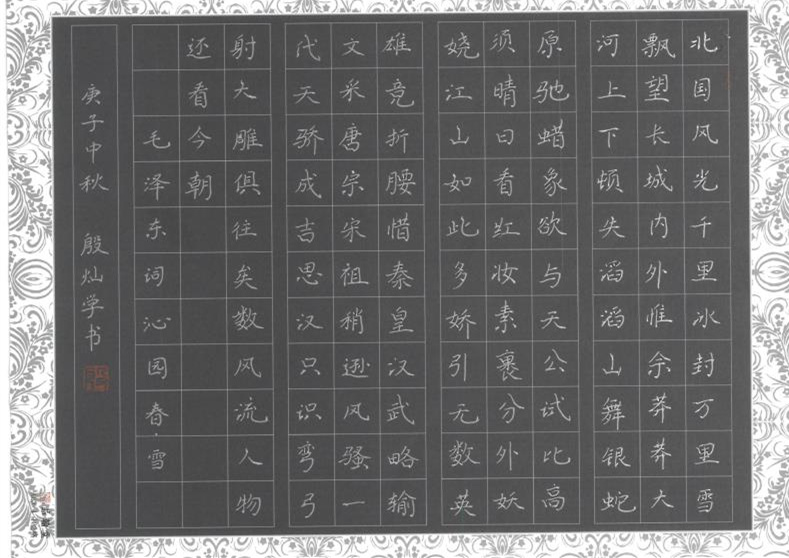 北国风光千里冰封万里雪
飘望长城内外惟余莽莽大
河上下顿失滔滔山舞银蛇
原驰蜡象欲与天公试比高
须晴日看红妆素裹分外妖
娆江山如此多娇引无数英
雄竞折腰惜秦皇汉武略输
文采唐宗宋祖稍逊风骚一
代天骄成吉思汉只识弯弓
射大雕俱往矣数风流人物
还看今朝
毛泽东词沁园春·雪
庚子中秋 殷灿学书